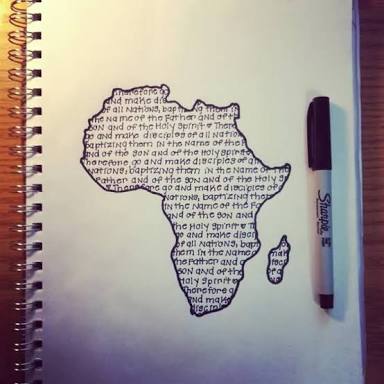 Therefore go
and make dis
of all Nations, baptizing them in
the Name of the Father and of th
son and of the Holy Spirit There
go and make disciples of all Nation
baptizing them in the Name of the F
and of the son and of the Holy Spirit
herefore go and make disciples of all
Nations, baptizing them in the Name of the
Father and of the son and of the Holy S
Therefore go and make disciples of
Nations, baptizing them
in the Name of the Fa
and of the son and
the Holy Spirit T
go and make discip
of all Nations, bapt
them in the Name
the Father and of
son and of the
Therefore g
and make
discip
mak
disc
of a
Sharpie